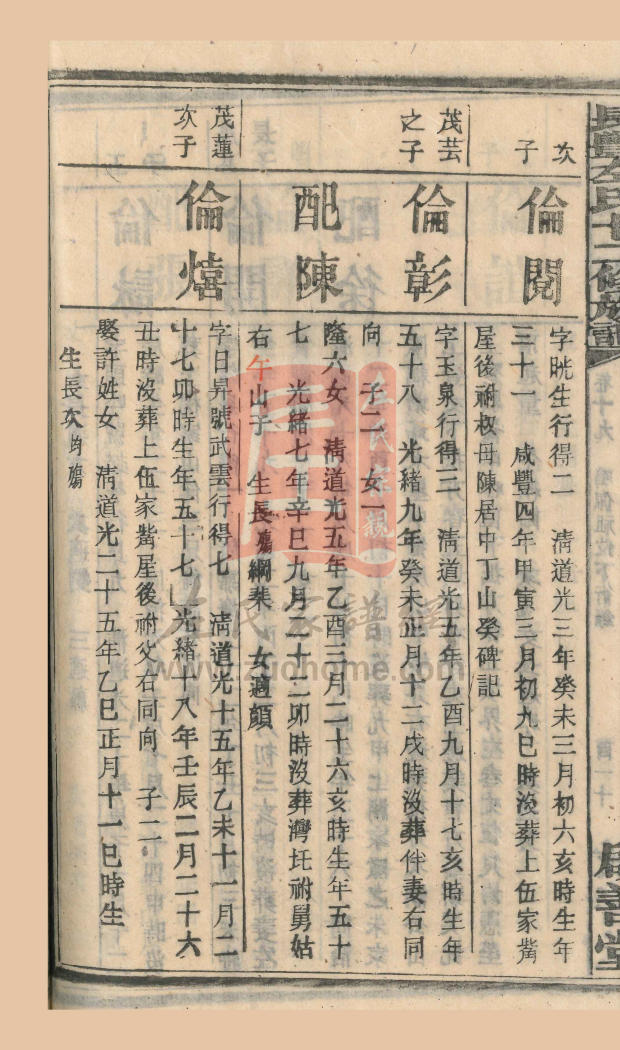 長豐左氏十二修族譜
卷十九
居善堂
次
子
倫閱
字晄生行得二　清道光三年癸未三月初六亥時生年
三十一　咸豐四年甲寅三月初九巳時沒葬上伍家嵩
屋後祔叔母陳居中丁山癸碑記
茂芸
之子
倫彰
字玉泉行得三　清道光五年乙酉九月十七亥時生年
五十八　光緒九年癸未正月十二戌時沒葬伴妻右同
向　子二　女一
配陳
隆六女　清道光五年乙酉三月二十六亥時生年五十
七　光緒七年辛巳九月二十二卯時沒葬灣圫祔舅姑
右午山子　生長殤綱枼　女適顏
茂蓮
次子
倫熺
字日昇號武雲行得七　清道光十五年乙未十一月二
十七卯時生年五十七　光緒十八年壬辰二月二十六
丑時沒葬上伍家嵩屋後祔父右同向　子二
娶許姓女　清道光二十五年乙巳正月十一巳時生
生長次均殤
左氏家譜網
www.zuohome.com